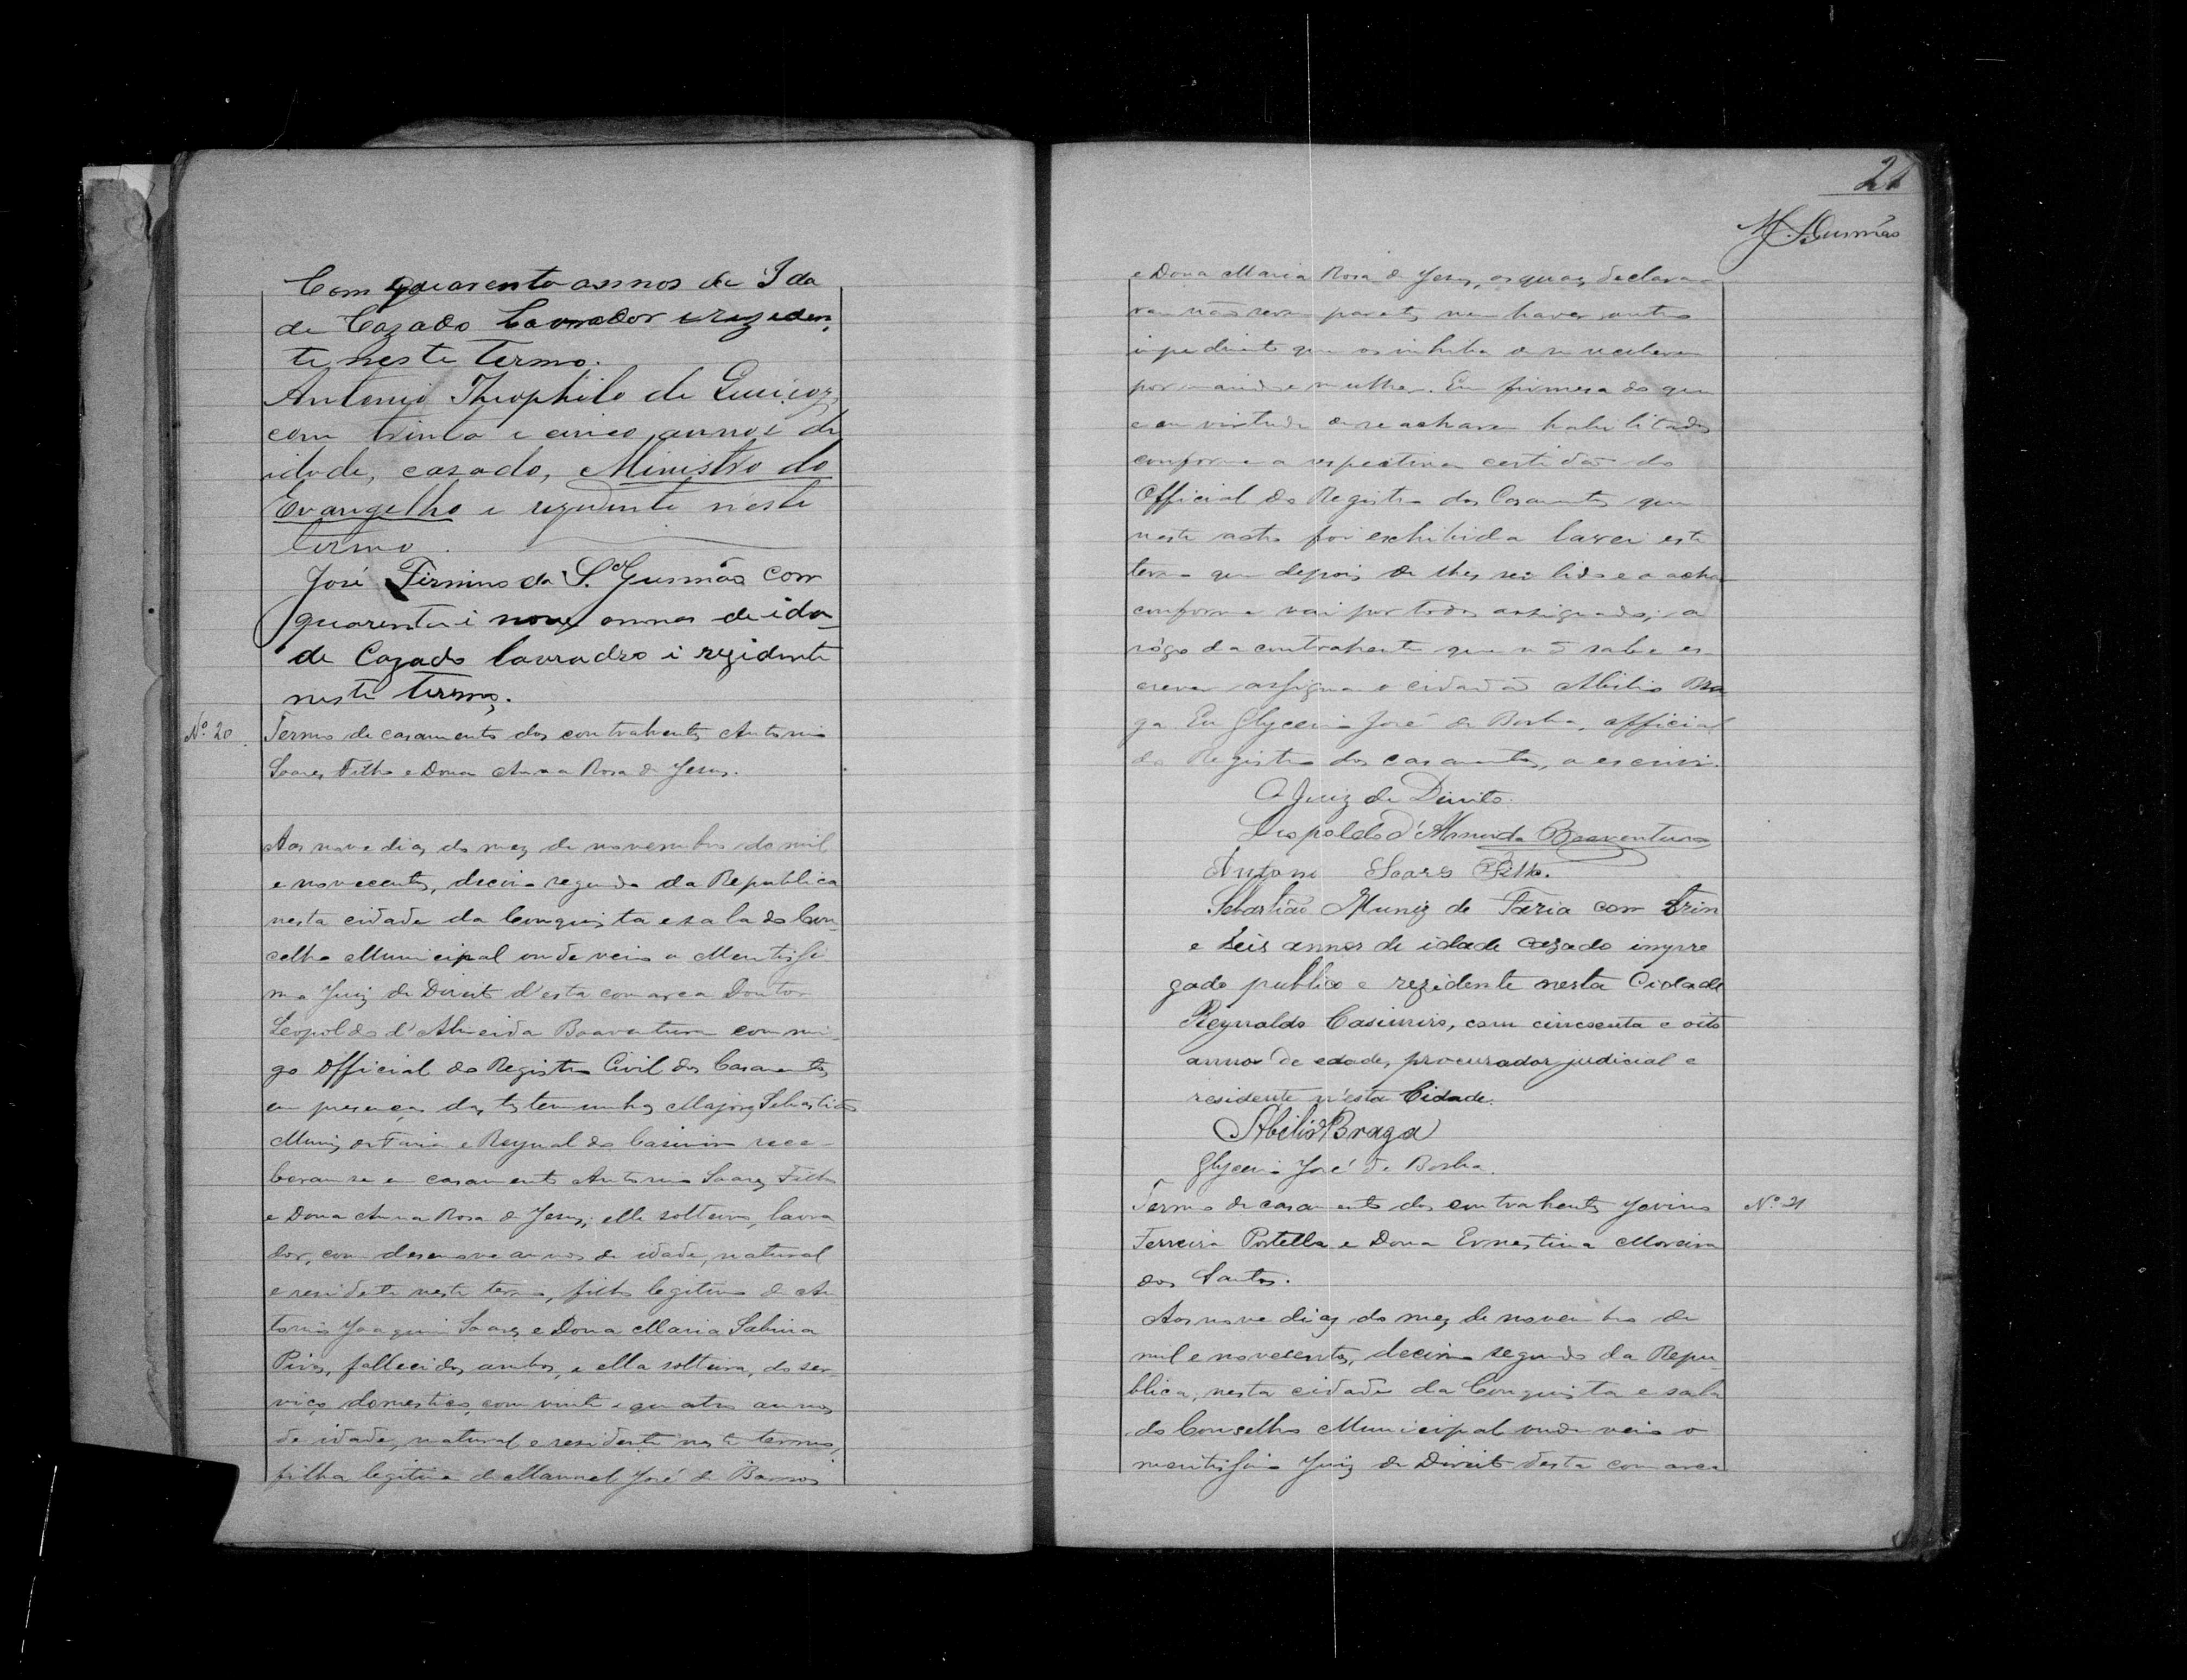 Com quarenta annos de Ida
de Cazado Lavrador e reziden,
te neste Termo.
Antonio Theophilo de Queiroz,
com trinta e cinco annos de
idade, casado, Ministro do
Evangelho e residente n'este
termo.
José Firmino da S.ª Gusmão com
quarenta i nove annos de ida-
de Cazado lavradro i rezidente
neste Termo.
Nº 20
Termo de casamento dos contrahentes Antonio
Soares Filho e Dona Anna Rosa de Jesus.
Aos nove dias do mez de novembro do mil
e novecentos, decimo segundo da Republica
nesta cidade da Conquista e sala do Con-
celho Municipal onde veio o Meritissi
mo Juiz de Direito d'esta comarca Doutor
Leopoldo d'Almeida Boaventura commi-
go Official do Registro Civil dos Casamentos,
em presença das testemunhas Major Sebastião
Muniz de Faria e Reynaldo Casimiro rece-
beram se em casamento Antonio Soares Filho
e Dona Anna Rosa de Jesus; elle solteiro, lavra
dor, com desenove annos de idade, natural
e residente neste termo, filho legitimo de An
tonio Joaquim Soares e Dona Maria Sabina
fallecidos ambos, e ella solteira, do ser-
viço domestico, com vinte e quatro annos
de idade, natural e residente neste termo,
filha legitima de Manoel José de Barros
21
e Dona Maria Rosa de Jesus, os quaes declara-
ram não serem parentes nem haver outro
impedimento que os inhiba de se receberem
por marido e mulher. Em firmesa do que
e em virtude de se acharem habilitados
conforme a respectiva certidão do
Official do Registro dos Casamentos que
neste acto foi exhibida lavrei este
termo que depois de lhes ser lido e o achar
conforme vai por todos assignado; a
rôgo da contrahente que não sabe es-
crever assigna o cidadão Abilio Bra
ga Eu Glycerio José de Borba, official
do Registro dos casamentos, o escrivi.
O Juiz de Direito.
Leopoldo d'Almeida Boaventura
Antonio Soares Filho.
Sebastião Muniz de Faria com trin
e seis annos de idade cazado impre
gado publico e rezidente nesta Cidade
Reynaldo Casimiro, com cincoenta e oito
annos de edade, procurador judicial e
residente n'esta Cidade.
Abilio Braga
Glycerio José de Borba.
Termo de casamento dos contrahentes Jovino
Nº 21
Ferreira Portella e Dona Ernestina Moreira
dos Santos.
Aos nove dias do mez de novembro de
mil e novecentos, decimo segundo da Repu-
blica, nesta cidade da Conquista e sala
do Conselho Municipal onde veio o
meritissimo Juiz de Direito desta comarca